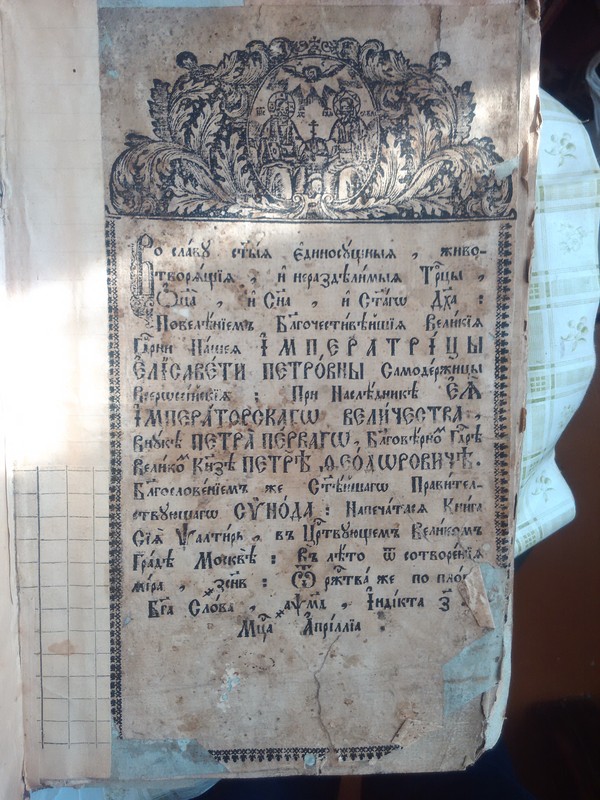 Во славу ст҃ыѧ єдиносꙋщныѧ , живо-
творѧщїѧ , и нераздѣлимыѧ Трⷪ҇цы ,
Ѻц҃а , и Сн҃а , и Ст҃агѡ Дх҃а :
Повелѣнїемъ Бл҃гочестивѣйшїѧ Великїѧ
Гдⷭ҇рни Нашеѧ І҆МПЕРАТРІ́ЦЫ
ЕЛІСАВЕТИ ПЕТРО́ВНЫ Самодержицы
Всерѡссїйскїѧ : При Наслѣдникѣ ЕѦ̀
І҆МПЕРА́ТОРСКАГѠ ВЕЛИ́ЧЕСТВА ,
Внꙋкѣ ПЕТРА̀ ПЕ́РВАГѠ , Бл҃говѣрномъ Гдⷭ҇рѣ
Великомъ Кн҃зѣ ПЕТРѢ̀ Ѳ҆ЕО́ДѠРОВИЧѢ .
Бл҃гословенїемъ же Ст҃ѣйшагѡ Правител-
ствꙋющагѡ СѴНО́ДА : Напечатасѧ Книга
Сїѧ Ѱалтирь , въ Црⷭ҇твꙋющемъ Великомъ
Градѣ Москвѣ : въ лѣто ѿ сотворенїѧ
мїра , Ѿ ржⷭ҇тва же по пло́
Бг҃а Слова , ҂аѱм҃ , І҆ндїкта г҃ .
Мцⷭ҇а А҆прїллїа :